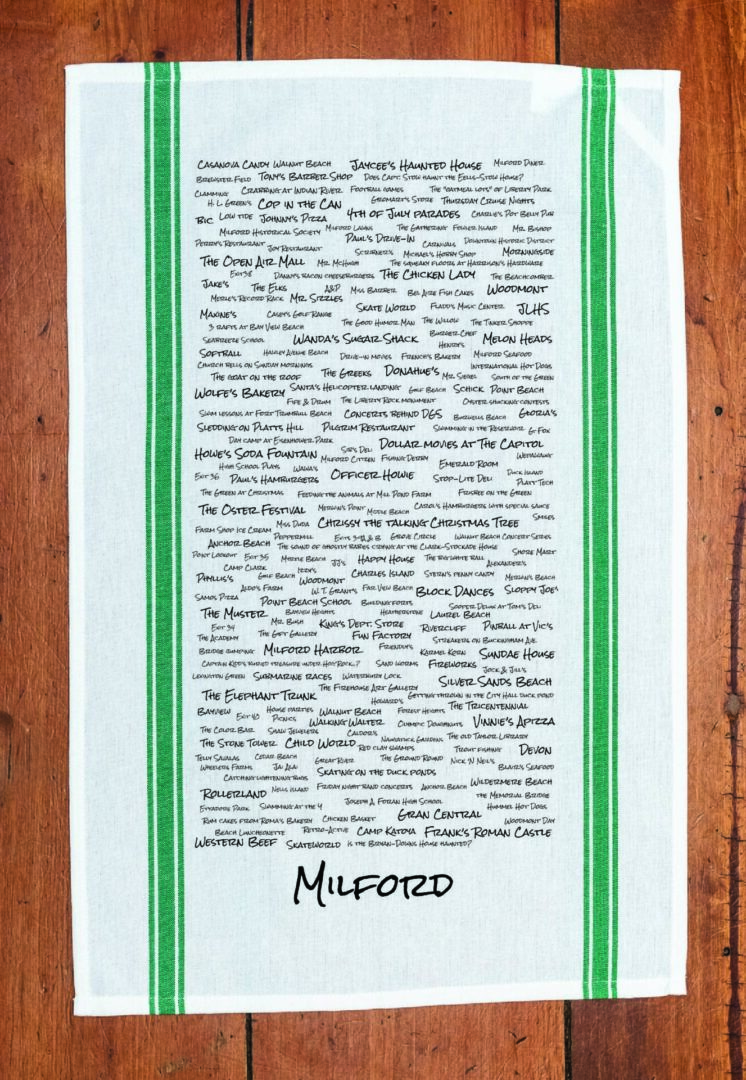 Casanova Candy Walnut Beach Jaycee's Haunted House Milford Diner
Brewster Field Tony's Barber Shop Does Capt. Stow haunt the Eells-Stow House?
Clamming Crabbing at Indian River Football games The "oatmeal lots" of Liberty Park
H. L. Green's Cop in the Can Gromart's Store Thursday Cruise Nights
BIC Low tide Johnny's Pizza 4th of July parades Charlie's Pot Belly Pub
Milford Historical Society Milford Lanes The Gathering Fowler Island Mr. Bishop
Perry's Restaurant Joy Restaurant Paul's Drive-In Carnivals Downtown Historic District
Scribner's Michael's Hobby Shop Morningside
The Open Air Mall Mr. McHugh The squeaky floors at Harrison's Hardware
Exit 38 Danny's bacon cheeseburgers The Chicken Lady The Beachcomber
Jake's The Elks A&P Miss Barber Bel Aire Fish Cakes Woodmont
Merle's Record Rack Mr. Sizzles
Skate World Fladd's Music Center JLHS
Maxine's Casey's Golf Range
3 rafts at Bay View Beach The Good Humor Man The Willow The Tinker Shoppe
Seabreeze School Wanda's Sugar Shack Burger Chef Henry's Melon Heads
Softball Hawley Avenue Beach Drive-in movies French's Bakery Milford Seafood
Church bells on Sunday mornings International Hot Dogs
The goat on the roof The Greeks Donahue's Mr. Siegel South of the Green
Wolfe's Bakery Santa's Helicopter landing Gulf Beach Schick Point Beach
Fife & Drum The Liberty Rock monument Oyster shucking contests
Swim lessons at Fort Trumbull Beach Concerts behind DGS Burwells Beach Gloria's
Sledding on Platts Hill Pilgrim Restaurant Swimming in the Reservoir G. Fox
Day camp at Eisenhower Park Dollar movies at The Capitol
Howe's Soda Fountain Sap's Deli Milford Citizen Fishing Derby Wepawaug
High School Plays Wawa's Emerald Room
Exit 36 Paul's Hamburgers Officer Howie Stop-Lite Deli Duck Island
Platt Tech
The Green at Christmas Feeding the animals at Mill Pond Farm Frisbee on the Green
The Oster Festival Merwin's Point Moose Beach Carol's Hamburgers with special sauce
Farm Shop Ice Cream Miss Duda Chrissy the talking Christmas Tree Smiles
Anchor Beach Peppermill Grove Circle Walnut Beach Concert Series
The sound of ghostly babies crying at the Clark-Stockade House
Point Lookout Exit 35 Myrtle Beach JJ's Happy House The big white ball Shore Mart
Camp Clark Izzy's Alexander's
Phyllis's Gulf Beach Woodmont Charles Island Stern's penny candy Merwin's Beach
Aldo's Farm W. T. Grant's Far View Beach Block Dances Sloppy Joe's
Samo's Pizza Point Beach School Building forts Sooper Delux at Tom's Deli
The Muster Bayview Heights Heatherstone Laurel Beach
Exit 34 Mr. Bush King's Dept. Store Rivercliff Pinball at Vic's
The Academy The Gift Gallery Fun Factory Streakers on Buckingham Ave
Bridge jumping Milford Harbor Friendly's Karmel Korn Sundae House
Captain Kidd's buried treasure under Hog Rock..? Sand worms Fireworks Jock & Jill's
Lexington Green Submarine races Waterbury Lock Silver Sands Beach
The Elephant Trunk The Firehouse Art Gallery Getting thrown in the City Hall duck pond
Howard's
Bayview House parties Walnut Beach Forest Heights The Tricentennial
Exit 40 Picnics Walking Walter Olympic Doughnuts Vinnie's Apizza
The Color Bar Shaw Jewelers Caldor's Naugatuck Gardens The old Taylor Library
The Stone Tower Child World Red clay swamps Trout fishing Devon
Telly Savalas Cedar Beach Great River The Ground Round Nick 'N Neil's
Wheelers Farms Jai Alai Blair's Seafood
Catching lightening bugs Skating on the duck ponds
Rollerland Nells Island Friday night band concerts Anchor Beach Wildermere Beach
The Memorial Bridge
Eisenhower Park Swimming at the Y Joseph A. Foran High School Hummel Hot Dogs
Rum cakes from Roma's Bakery Chicken Basket Gran Central Woodmont Day
Beach Luncheonette Retro-Active Camp Katoya Frank's Roman Castle
Western Beef Skateworld Is the Bryan-Downs House haunted?
Milford